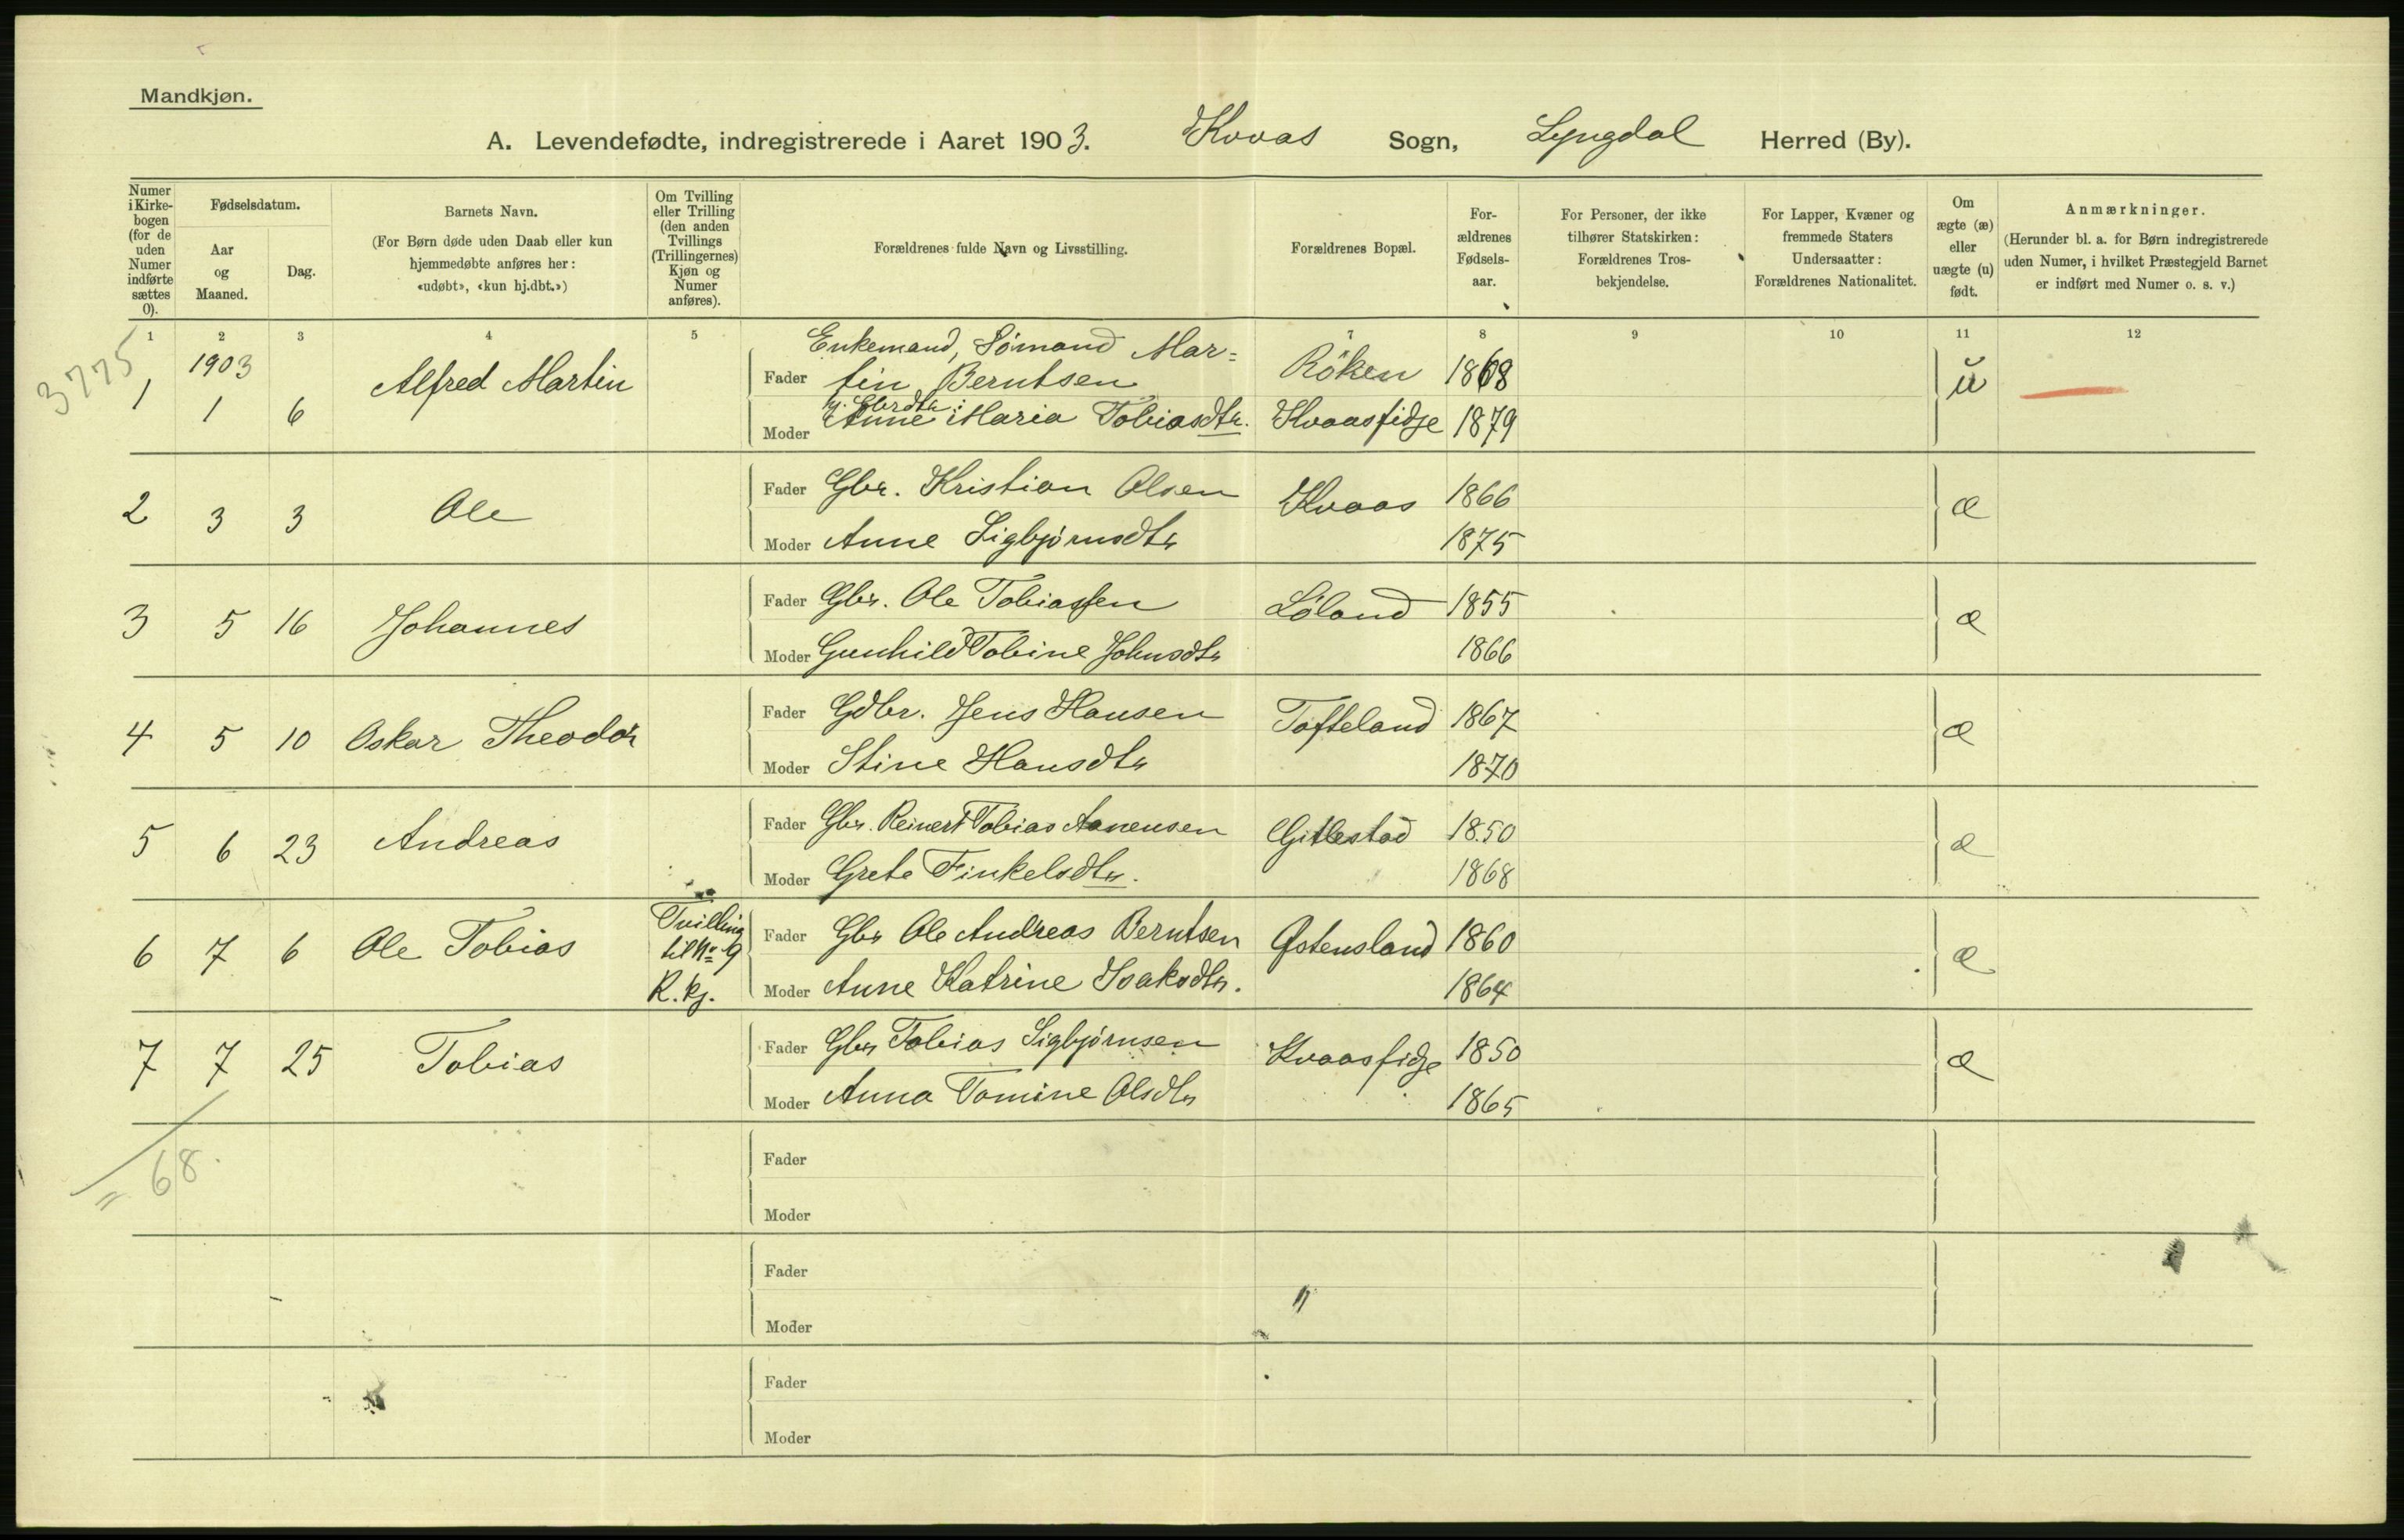 Mandkjøn.
A. Levendefødte, indregistrerede i Aaret 1903. Kvaas Sogn, Lyngdal Herred (By).
Numer i Kirkebogen (for de uden Numer indførte sættes 0).
Fødselsdatum.
Aar og Maaned.
Dag.
Barnets Navn.
(For Børn døde uden Daab eller kun hjemmedøbte anføres her: «udøbt», «kun hj.dbt.»)
Om Tvilling eller Trilling (den anden Tvillings (Trillingernes) Kjøn og Numer anføres).
Forældrenes fulde Navn og Livsstilling.
Forældrenes Bopæl.
Forældrenes Fødselsaar.
For Personer, der ikke tilhører Statskirken: Forældrenes Trosbekjendelse.
For Lapper, Kvæner og fremmede Staters Undersaatter: Forældrenes Nationalitet.
Om ægte (æ) eller uægte (u) født.
Anmærkninger.
(Herunder bl. a. for Børn indregistrerede uden Numer, i hvilket Præstegjeld Barnet er indført med Numer o. s. v.)
1 2 3 4 5 7 8 9 10 11 12
3775
1903
1 1 6 Alfred Martin
Enkemand, Sømand Mar=
Fader tin Berntsen Røken 1868 u
Moder Anne Maria Tobiasdtr. Kvaasfidje 1879
2 3 3 Ole
Fader Gbr. Kristian Olsen Kvaas 1866 æ
Moder Anne Sigbjørnsdtr 1875
3 5 16 Johannes
Fader Gbr. Ole Tobiassen Løland 1855 æ
Moder Gunhild Tobine Johnsdtr 1866
4 5 10 Oskar Theodor
Fader Gdbr. Jens Hansen Tofteland 1867 æ
Moder Stine Hansdtr 1870
5 6 23 Andreas
Fader Gbr. Reinert Tobias Aanensen Gitlestad 1850 æ
Moder Grete Finkelsdtr. 1868
6 7 6 Ole Tobias Tvilling til No 9 K. kj.
Fader Gbr Ole Andreas Berntsen Østensland 1860 æ
Moder Anne Katrine Isaksdtr. 1864
7 7 25 Tobias
Fader Gbr Tobias Sigbjørnsen Kvaasfidje 1850 æ
Moder Anna Tomine Olsdtr 1865
68.
Fader
Moder
Fader
Moder
Fader
Moder